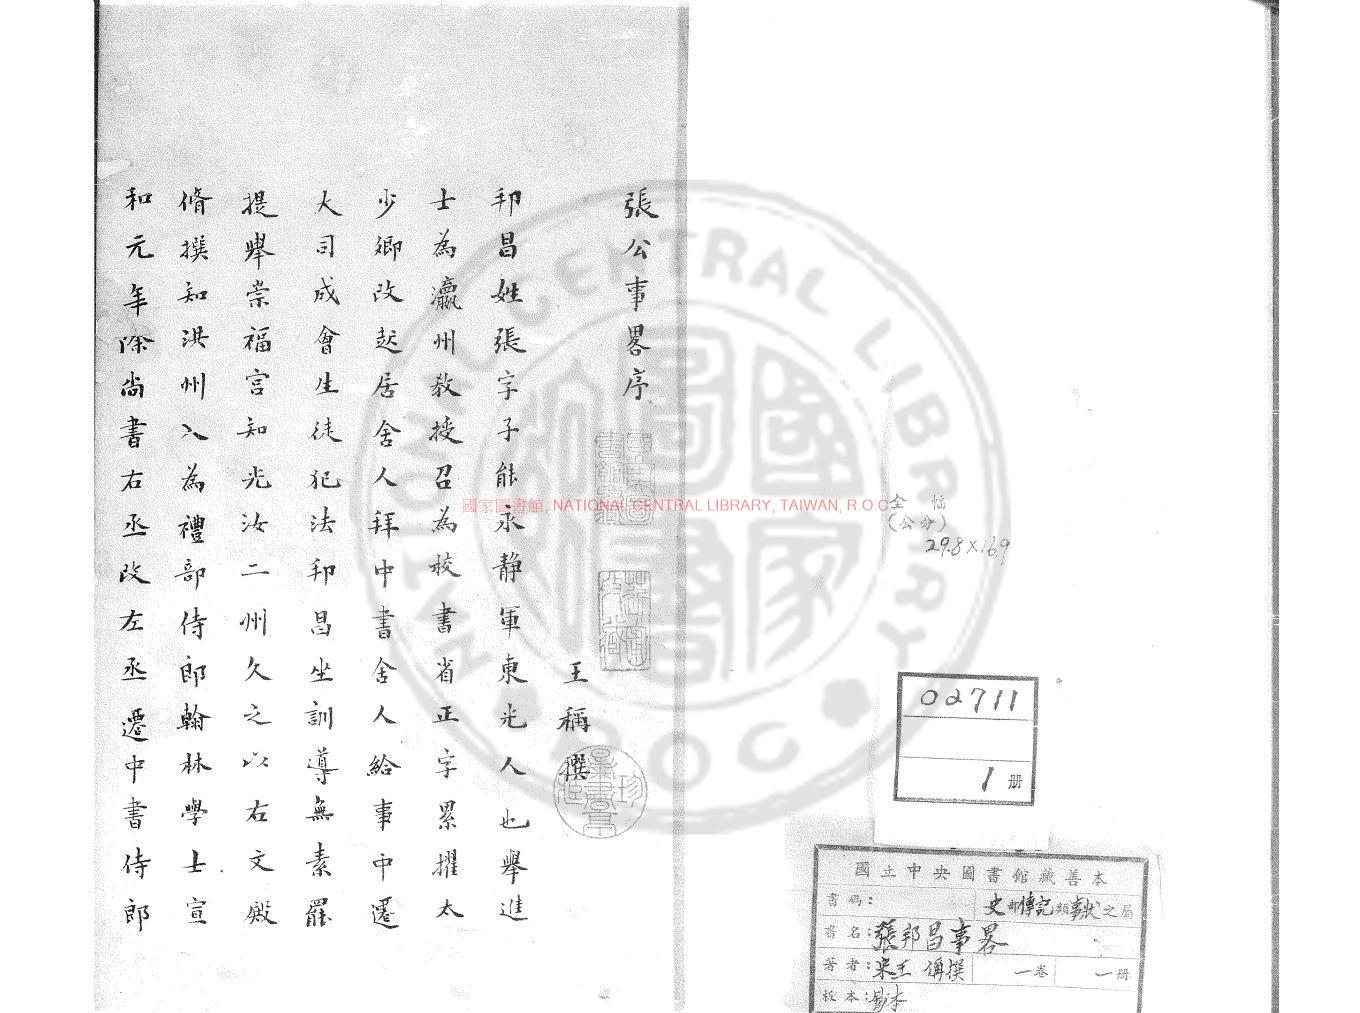 張公事畧序
王稱撰
邦昌姓張字子能永静軍東光人也舉進
士為瀛州教授召為校書省正字累擢太
少卿改起居舍人拜中書舍人給事中遷
大司成會生徒犯法邦昌坐訓導無素罷
提舉崇福宫知光汝二州久之以右文殿
脩撰知洪州入為禮部侍郎翰林學士宣
和元年除尚書右丞改左丞遷中書侍郎
國家圖書館, NATIONAL CENTRAL LIBRARY, TAIWAN, R.O.C
NATIONAL CENTRAL LIBRARY
ROC
全幅
(公分)
29.8×16.9
02711
1册
國立中央圖書館藏善本
書碼：
史部傳記類事狀之屬
書名：張邦昌事畧
著者：宋王偁撰 一卷 一册
板本：鈔本